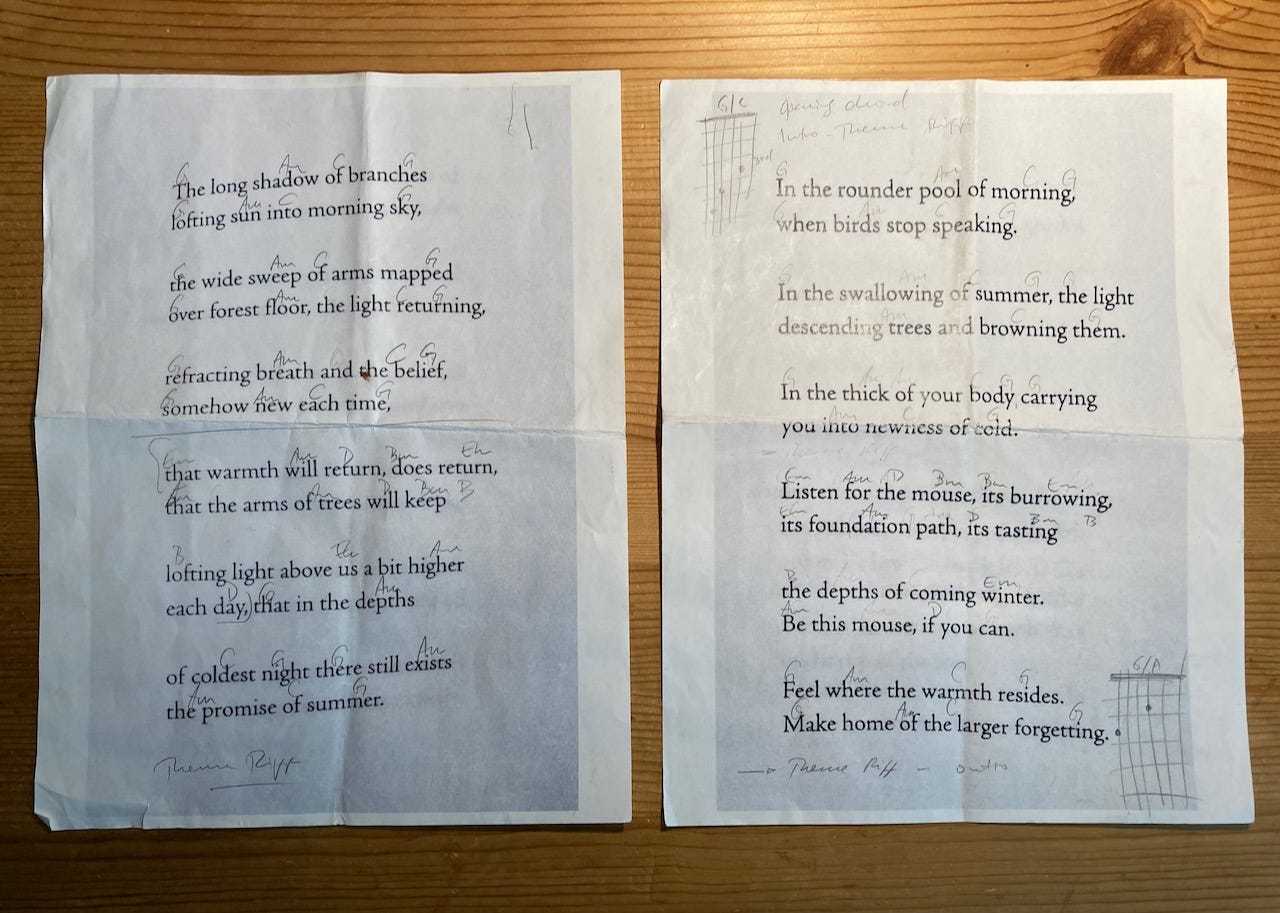 G Am C G
The long shadow of branches
G Am C G
lofting sun into morning sky,
G Am C G
the wide sweep of arms mapped
G Am C G
over forest floor, the light returning,
G Am C G
refracting breath and the belief,
G Am C G
somehow new each time,
Em Am D Bm Em
that warmth will return, does return,
Em Am D Bm B
that the arms of trees will keep
B Em Am
lofting light above us a bit higher
D G Am
each day,) that in the depths
C G C Am
of coldest night there still exists
Am C G
the promise of summer.
Theme Riff
G/C
opening chord
Intro - Theme Riff
3rd
G Am C G
In the rounder pool of morning,
G Am C G
when birds stop speaking.
G Am C G G
In the swallowing of summer, the light
Am C G
descending trees and browning them.
G Am C G G
In the thick of your body carrying
Am C G
you into newness of cold.
- Theme Riff
Em Am D Bm Bm Em
Listen for the mouse, its burrowing,
Em Am D Bm B
its foundation path, its tasting
B C Em
the depths of coming winter.
Am D
Be this mouse, if you can.
G Am C G
Feel where the warmth resides.
G Am C G
Make home of the larger forgetting.
G/A
→ Theme Riff - outro